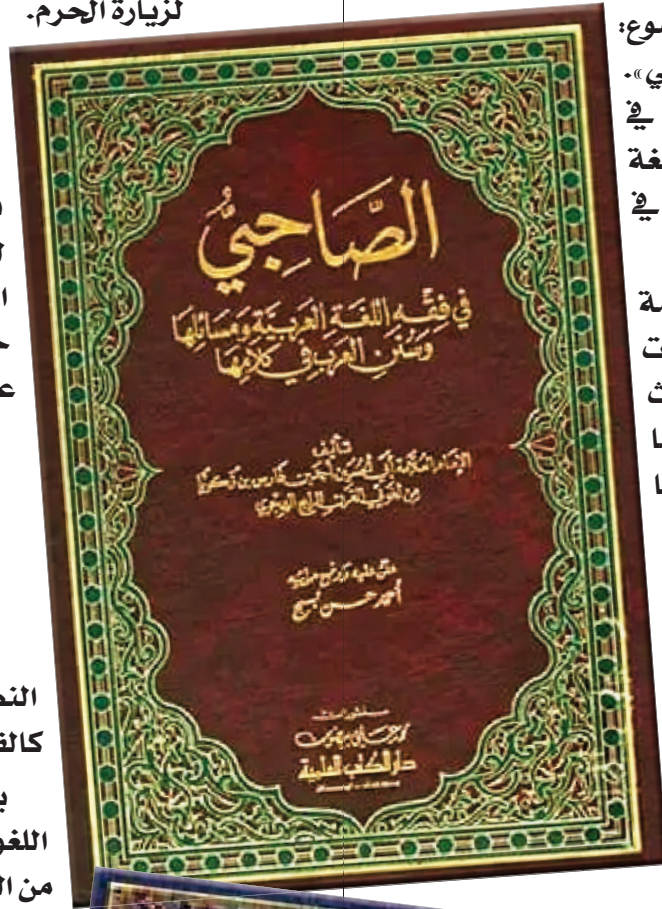 لزيارة الحرم.
وع:
ي».
في
غة
في
ة
ت
ث
ا
ا
الصَّاحِبيُّ
في فِقْه اللغَة العَرَبيَّة وَمَسَائِلِهَا
وَسُنَنِ العَرَب في كَلَامِهَا
تأليف
الإمام العلامة أبي الحسين أحمد بن فارس بن زكريا
من لغويي القرن الرابع الهجري
علق عليه ووضع حواشيه
أحمد حسن بسج
منشورات
محمد علي بيضون
دار الكتب العلمية
ح
ع
الن
كالف
ب
اللغو
من ال